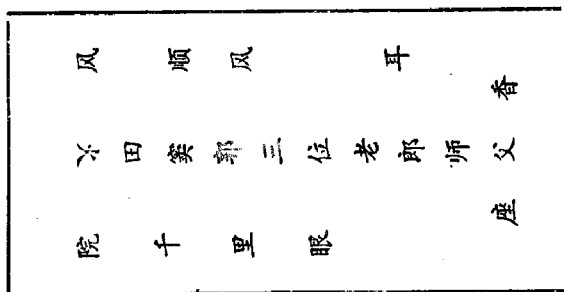 风 顺 风 耳 香
火 田 窦 郭 三 位 老 郎 师 父
院 千 里 眼 座